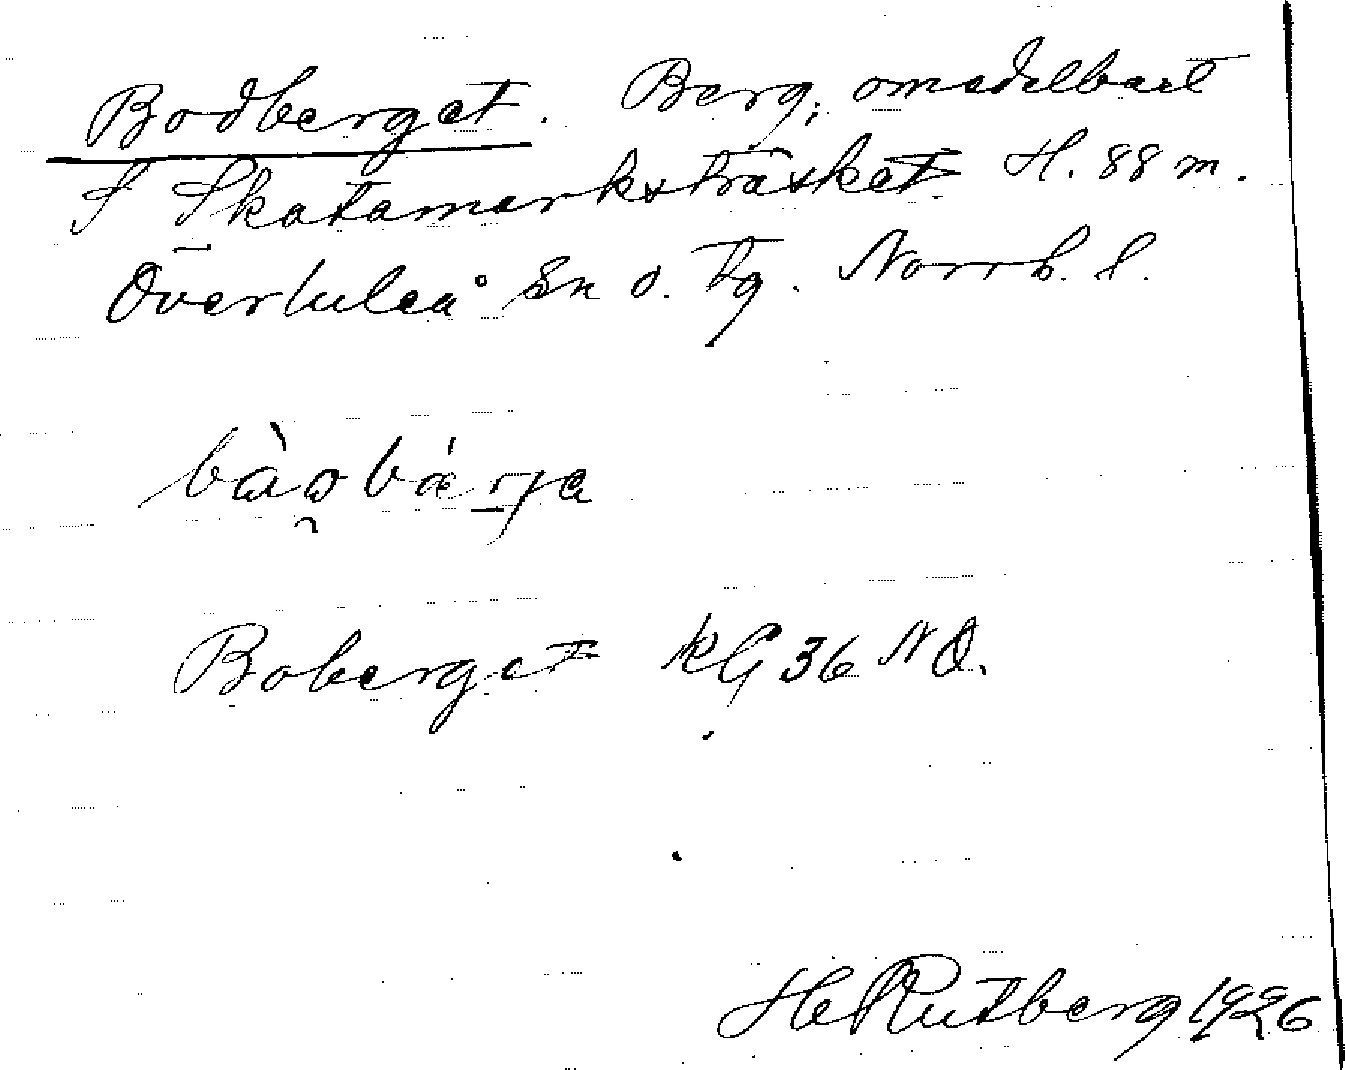 Bodberget. Berg, omedelbart
S Skatamarksträsket H. 88 m.
Överluleå Sn o. Tg. Norrb. l.
Boberget kG 36 NO.
He Rutberg 1926